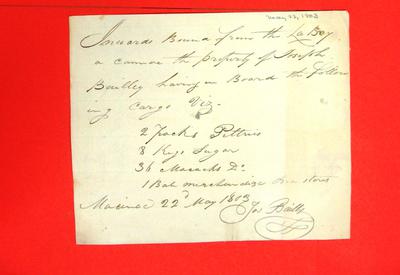 May 22, 1803
Inwards Bound from the La Bay
a cannoe the property of Joseph
Bailley having on Board the follow
ing Cargo Viz.
2 Packs Peltries
8 Kegs Sugar
36 Mocacks Do
1 Bale merchandize Sea stores
Macinac 22d May 1803
Jos Bailly